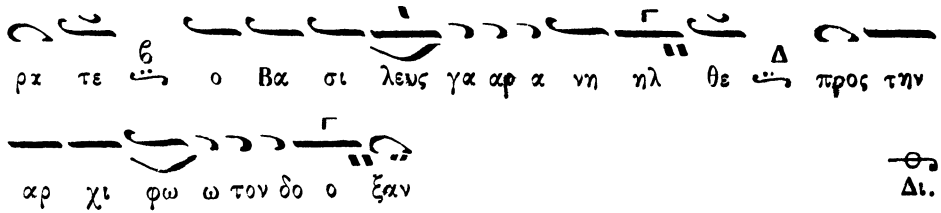 ρχ τε ϐ ο Βα σι λευς γα αρ α νη ηλ θε Δ προς την
αρ χι φω ω τον δο ο ξαν Δι.